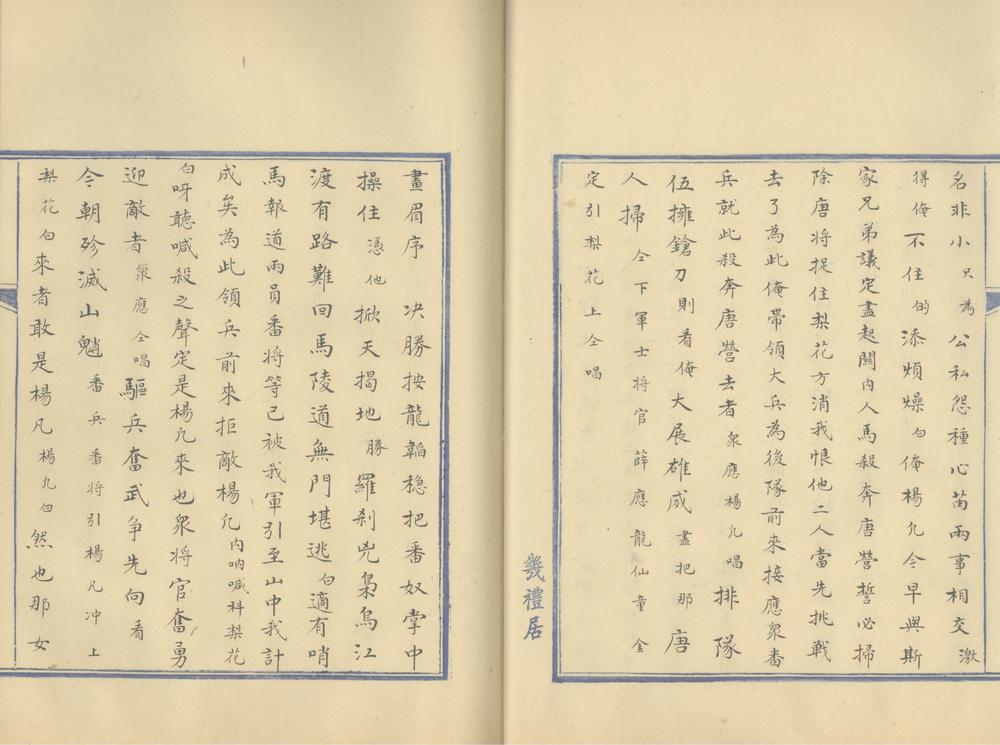 名非小只為公私怨種心苗兩事相交激
得俺不住的添煩燥白俺楊凢今早與斯
家兄弟議定盡起關內人馬殺奔唐營誓必掃
除唐將捉住梨花方消我恨他二人當先挑戰
去了為此俺帶領大兵為後隊前來接應衆番
兵就此殺奔唐營去者衆應楊凢唱排隊
伍擁鎗刀則看俺大展雄威盡把那唐
人掃仝下軍士將官薛應龍仙童金
定引梨花上仝唱
幾禮居
畫眉序 决勝按龍韜穩把番奴掌中
操住憑他掀天揭地勝羅刹兇梟烏江
渡有路難回馬陵道無門堪逃白適有哨
馬報道兩員番將等已被我軍引至山中我計
成矣為此領兵前來拒敵楊凢內吶喊科梨花
白呀聽喊殺之聲定是楊凢來也衆將官奮勇
迎敵者衆應仝唱驅兵奮武争先向看
令朝殄滅山魈番兵番將引楊凡冲上
梨花白來者敢是楊凡楊凢白然也那女